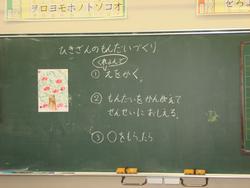 ヲロヨモホノトソコオ
ひきざんのもんだいづくり
くれよんで
① えをかく。
② もんだいをかんがえて
せんせいにおしえる。
③ ○をもらったら